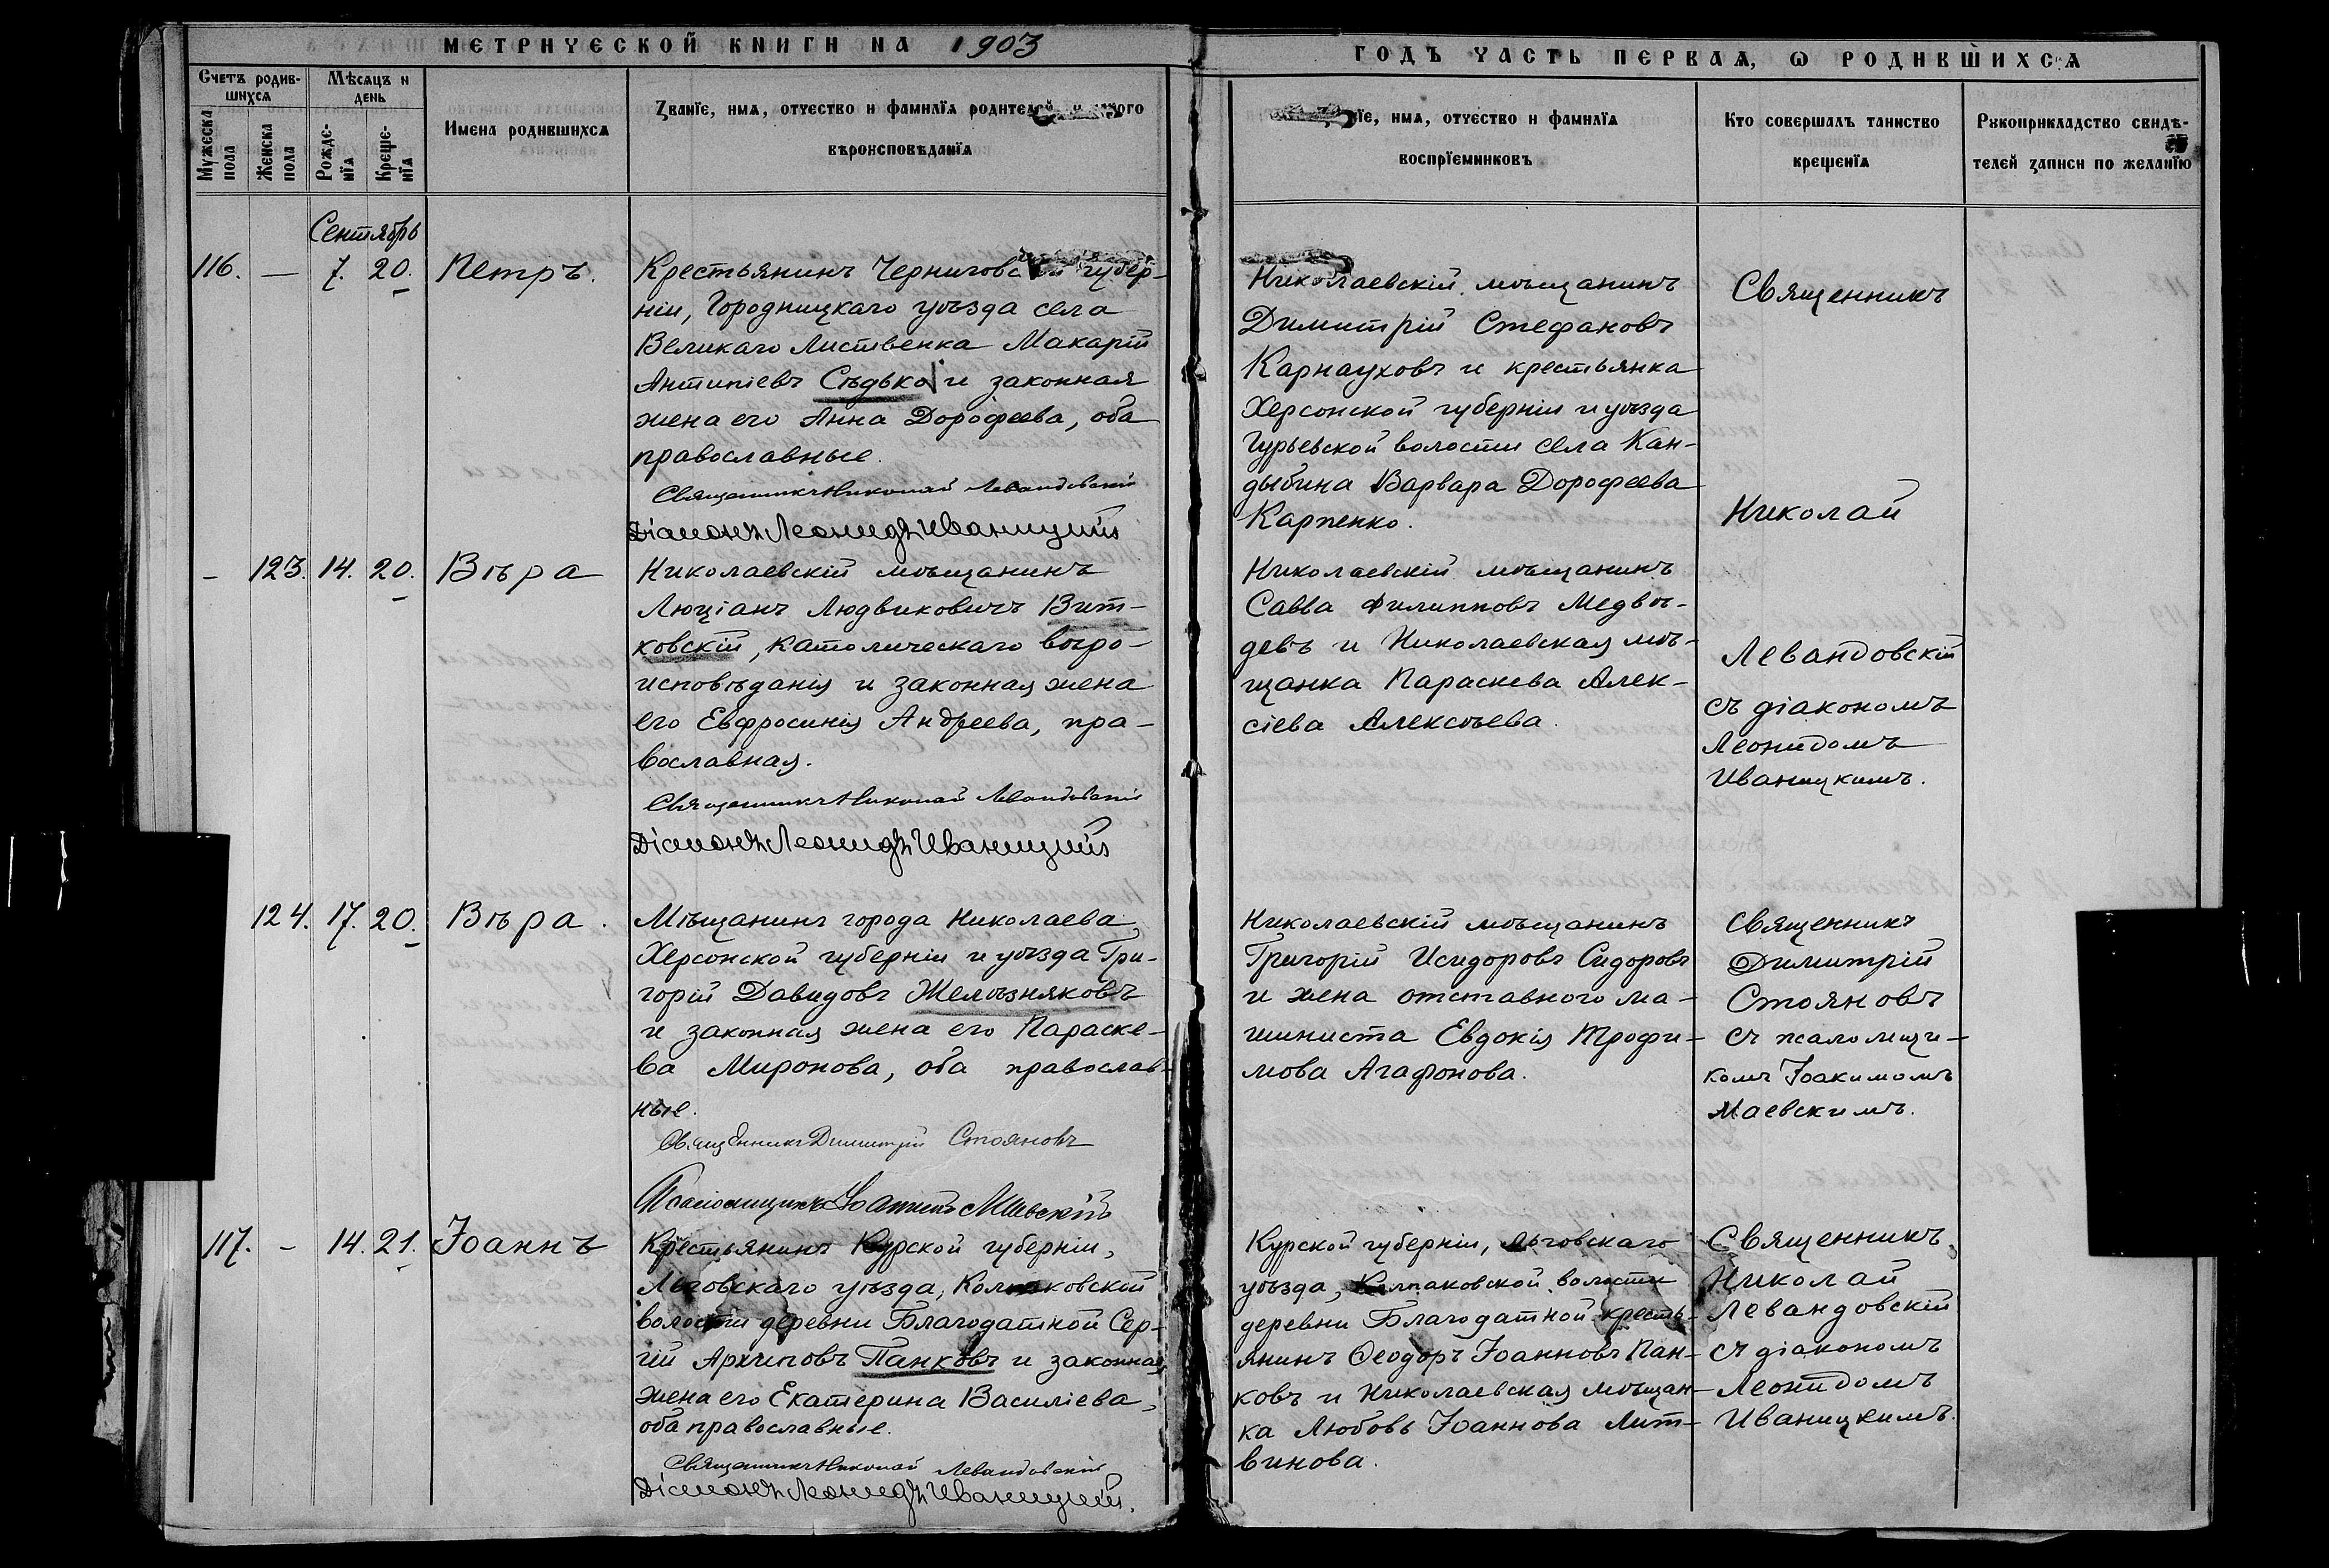 МЕТРИЧЕСКОЙ КНИГИ НА 1903
ГОДЪ ЧАСТЬ ПЕРВАЯ, Ѡ РОДИВШИХСѦ
Счетъ родив-
шихсѧ
Мѣсѧцъ и
день
Мужеска
пола
Женска
пола
Рожде-
нїѧ
Креще-
нїѧ
Имена родившихсѧ
Званїе, имѧ, отчество и фамилїѧ родителей
вѣроисповѣданїѧ
їе, имѧ, отчество и фамилїѧ
воспрїемниковъ
Кто совершалъ таинство
крещенїѧ
Рукоприкладство свидѣ-
телей записи по желанїю
Сентябрь
116. — 7. 20. Петръ.
Крестьянинъ Черниговской губер-
ніи, Городницкаго уѣзда села
Великаго Листвена Макарій
Антипіевъ Сѣдько и законная
жена его Анна Дорофеева, оба
православные.
Священникъ Николай Левандовскій
Діаконъ Леонидъ Иваницкій
Николаевскій мѣщанинъ
Димитрій Стефановъ
Карнауховъ и крестьянка
Херсонской губерніи и уѣзда
Гурьевской волости села Кан-
дыбина Варвара Дорофеева
Карпенко.
Священникъ
Николай
Левандовскій
съ діакономъ
Леонидомъ
Иваницкимъ.
– 123. 14. 20. Вѣра
Николаевскій мѣщанинъ
Люціанъ Людвиковичъ Вит-
ковскій, католическаго вѣро-
исповѣданія и законная жена
его Евфросинія Андреева, пра-
вославная.
Священникъ Николай Левандовскій
Діаконъ Леонидъ Иваницкій
Николаевскій мѣщанинъ
Савва Филипповъ Медвѣ-
девъ и Николаевская мѣ-
щанка Параскева Алек-
сіева Алексѣева.
124. 17. 20. Вѣра.
Мѣщанинъ города Николаева
Херсонской губерніи и уѣзда Гри-
горій Давидовъ Желѣзняковъ
и законная жена его Параске-
ва Миронова, оба православ-
ные.
Священникъ Димитрій Стояновъ
Псаломщикъ Іоакимъ Маевскій
Николаевскій мѣщанинъ
Григорій Исидоровъ Сидоровъ
и жена отставного ма-
шиниста Евдокія Трофи-
мова Агафонова.
Священникъ
Димитрій
Стояновъ
съ псаломщи-
комъ Іоакимомъ
Маевскимъ.
117. – 14. 21. Іоаннъ
Крестьянинъ Курской губерніи,
Льговскаго уѣзда, Колпаковской
волости деревни Благодатной Сер-
гій Архиповъ Панковъ и законная
жена его Екатерина Василіева,
оба православные.
Священникъ Николай Левандовскій
Діаконъ Леонидъ Иваницкій.
Курской губерніи, Льговскаго
уѣзда, Колпаковской волости
деревни Благодатной кресть-
янинъ Ѳеодоръ Іоанновъ Пан-
ковъ и Николаевская мѣщан-
ка Любовь Іоаннова Лит-
винова.
Священникъ
Николай
Левандовскій
съ діакономъ
Леонидомъ
Иваницкимъ.